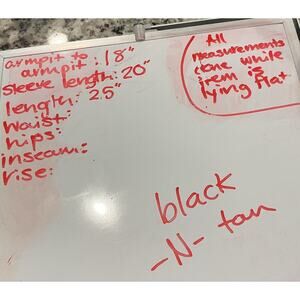 armpit to
armpit : 18"
sleeve length: 20"
length: 25"
waist:
hips:
inseam:
rise:
All
measurements
done while
item is
lying flat
black
-N- tan